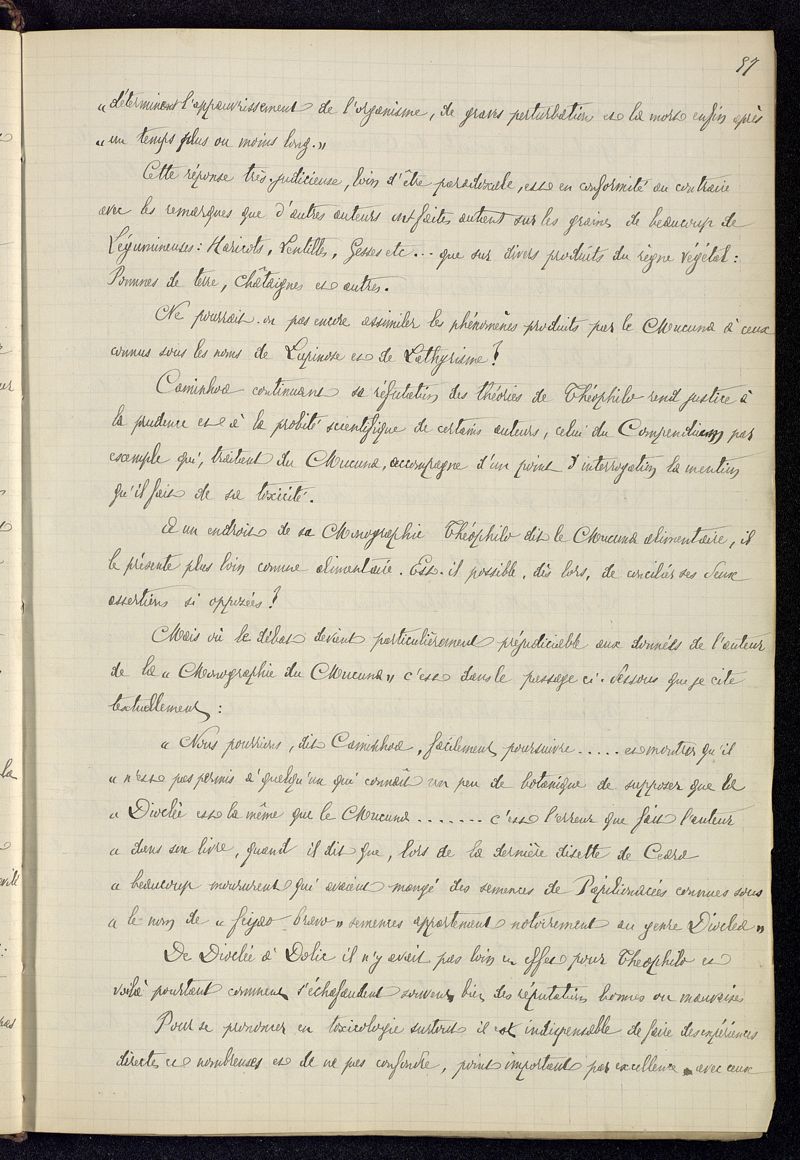 97
« déterminant l'appauvrissement de l'organisme, de graves perturbation et la mort enfin après
« un temps plus ou moins long. »
Cette réponse très-judicieuse, loin d'être paradoxale, est en conformité au contraire
avec les remarques que d'autres auteurs ont faites autant sur les graines de beaucoup de
Légumineuses: Haricots, Lentilles, Gesses etc... que sur divers produits du règne végétal:
Pommes de terre, Châtaignes et autres.
Ne pourrait-on pas encore assimiler les phénomènes produits par le Mucuna à ceux
connus sous les noms de Lupinose et de Lathyrisme?
Caminhoa continuant sa réfutation des théories de Théophilo rend justice à
la prudence et à la probité scientifique de certains auteurs, celui du Compendium par
exemple qui, traitant du Mucuna, accompagne d'un point d'interrogation la mention
qu'il fait de sa toxicité.
A un endroit de sa Monographie Théophilo dit le Mucuna alimentaire, il
le présente plus loin comme alimentaire. Est-il possible, dès lors, de concilier ses deux
assertions si opposées?
Mais où le débat devient particulièrement préjudiciable aux données de l'auteur
de la « Monographie du Mucuna » c'est dans le passage ci-dessous que je cite
textuellement:
« Nous pourrions, dit Caminhoa, facilement poursuivre ..... et montrer qu'il
« n'est pas permis à quelqu'un qui connaît un peu de botanique de supposer que la
« Dioclée est la même que le Mucuna ....... c'est l'erreur que fait l'auteur
« dans son livre, quand il dit que, lors de la dernière disette de Ceara
« beaucoup moururent qui avaient mangé des semences de Papilionacées connues sous
« le nom de « feijao bravo » semences appartenant notoirement au genre Dioclea »
De Dioclée à Dolic il n'y avait pas loin en effet pour Théophilo et
voilà pourtant comment s'échafaudent souvent bien des réputations bonnes ou mauvaises
Pour se prononcer en toxicologie surtout il est indispensable de faire des expériences
directes et nombreuses et de ne pas confondre, point important par excellence, avec ceux